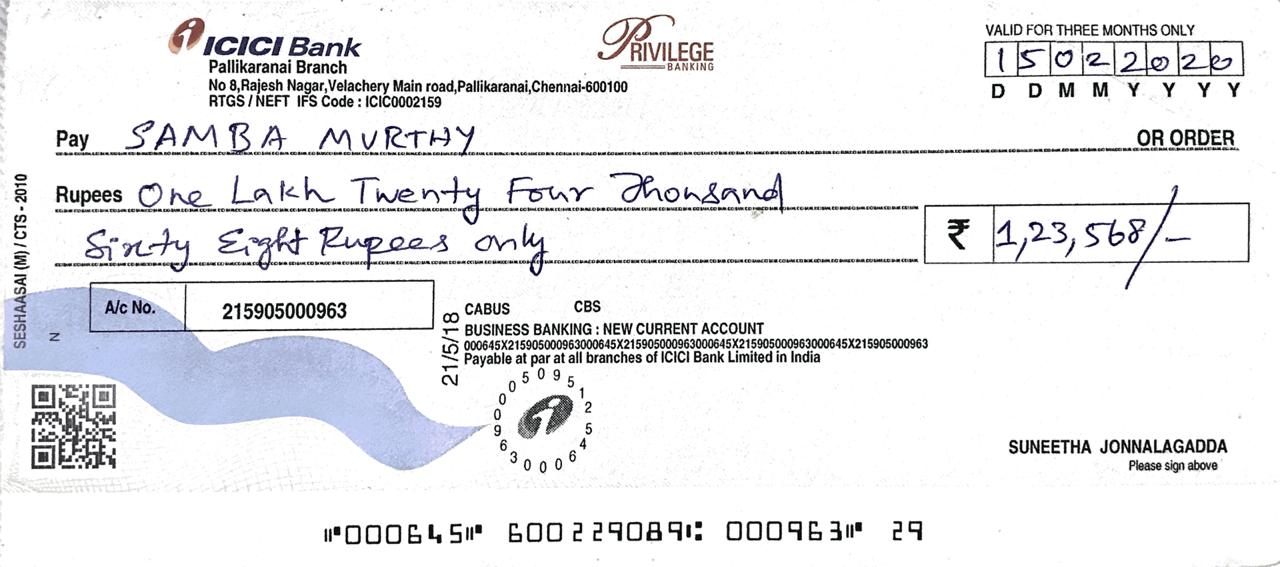 ICICI Bank
Pallikaranai Branch
No 8,Rajesh Nagar,Velachery Main road,Pallikaranai,Chennai-600100
RTGS / NEFT IFS Code : ICIC0002159
PRIVILEGE
BANKING
VALID FOR THREE MONTHS ONLY
15022020
D D M M Y Y Y Y
Pay SAMBA MURTHY OR ORDER
Rupees One Lakh Twenty Four Thousand
Sixty Eight Rupees only
₹ 1,23,568/-
SESHAASAI (M) / CTS - 2010
A/c No. 215905000963
N
21/5/18
CABUS CBS
BUSINESS BANKING : NEW CURRENT ACCOUNT
000645X215905000963000645X215905000963000645X215905000963
Payable at par at all branches of ICICI Bank Limited in India
000645215905000963
SUNEETHA JONNALAGADDA
Please sign above
⑈000645⑈ 600229089⑆ 000963⑈ 29